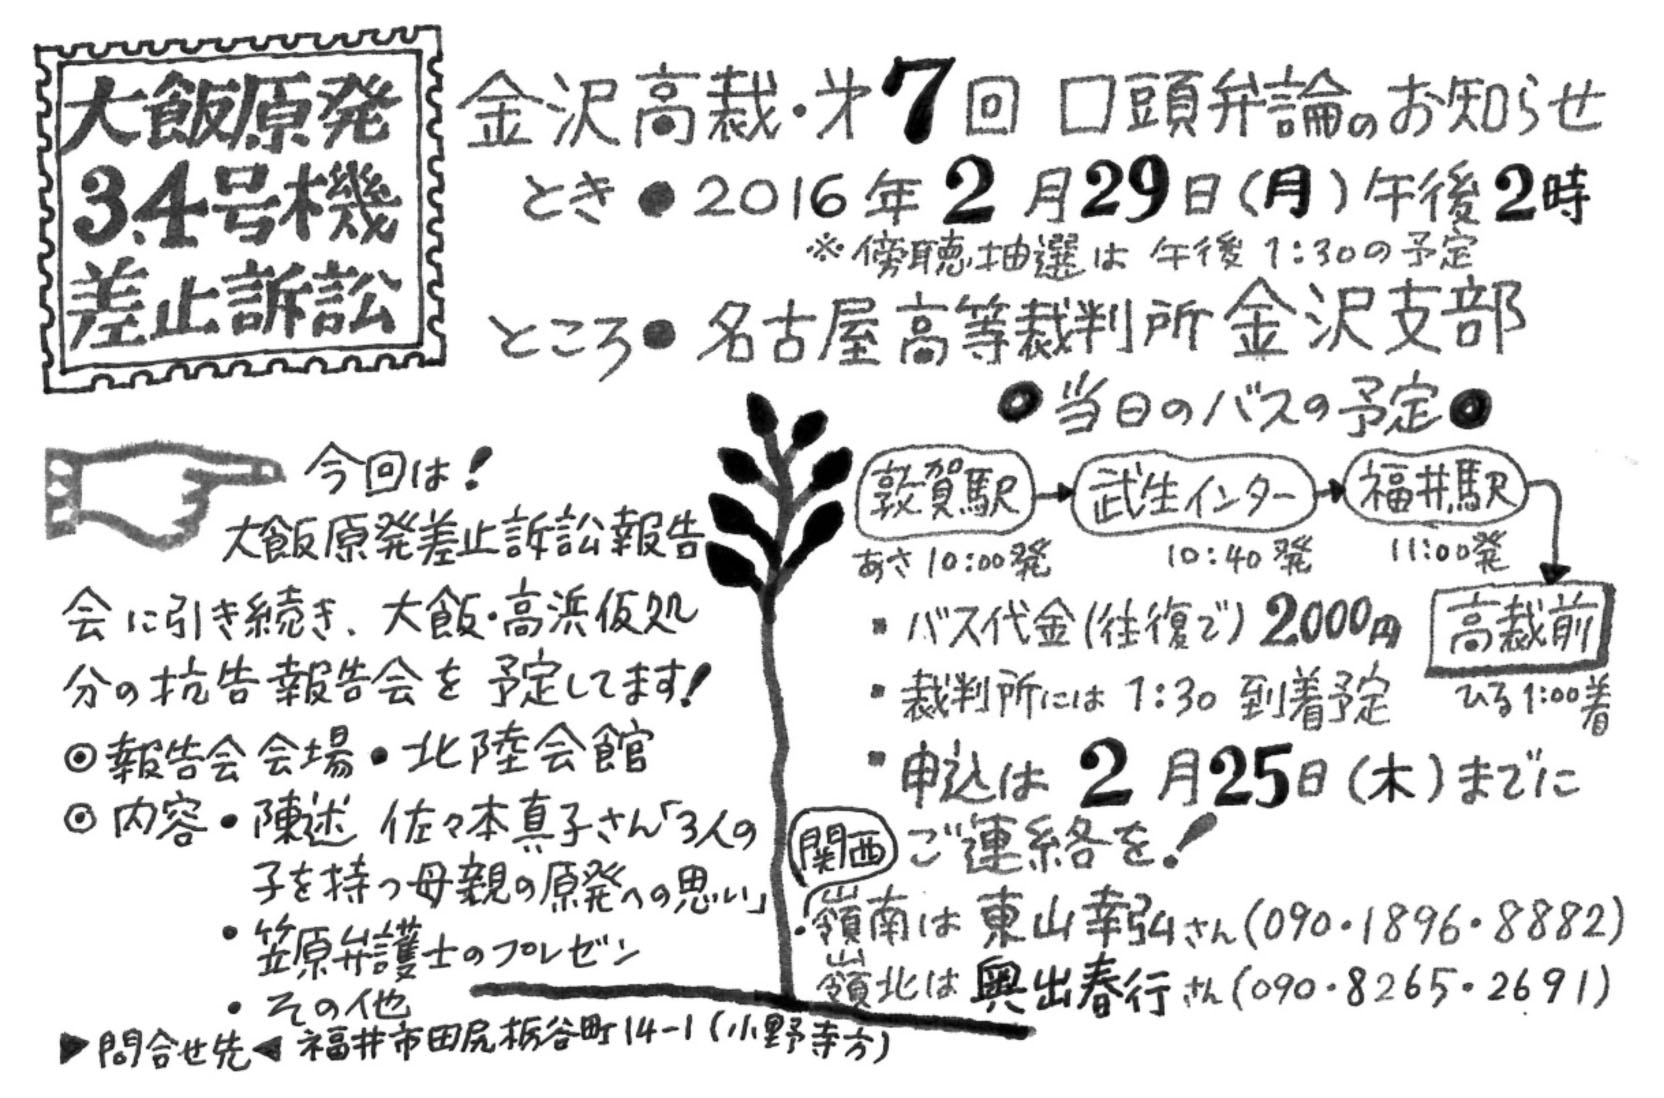 大飯原発
3.4号機
差止訴訟
金沢高裁・才7回 口頭弁論のお知らせ
とき●2016年2月29日(月)午後2時
※傍聴抽選は 午後1:30の予定
ところ●名古屋高等裁判所金沢支部
今回は!
大飯原発差止訴訟報告
会に引き続き、大飯・高浜仮処
分の抗告報告会を予定してます!
◎報告会会場・北陸会館
◎内容・陳述 佐々本真子さん「3人の
子を持つ母親の原発への思い」
・笠原弁護士のプレゼン
・その他
▶問合せ先◀ 福井市田尻栃谷町14-1(小野寺方)
◎当日のバスの予定◎
敦賀駅→武生インター→福井駅
あさ10:00発 10:40発 11:00発
高裁前
ひる1:00着
▪バス代金(往復で)2000円
▪裁判所には1:30到着予定
▪申込は2月25日(木)までに
ご連絡を!
関西
・嶺南は東山幸弘さん(090・1896・8882)
嶺北は奥出春行さん(090・8265・2691)